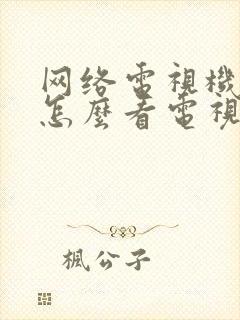 网络電視機
怎麼看電視
楓公子